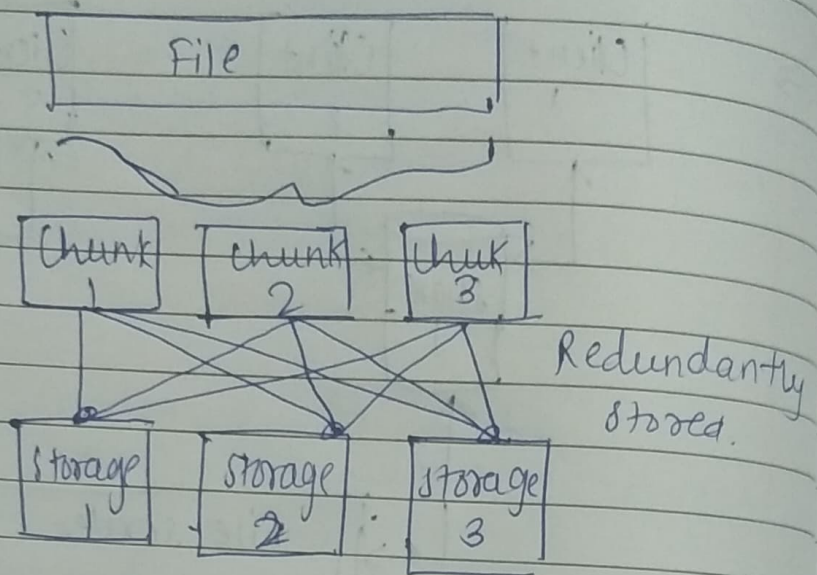 File
Chunk
1
chunk
2
chuk
3
Redundantly
stored.
storage
1
storage
2
storage
3